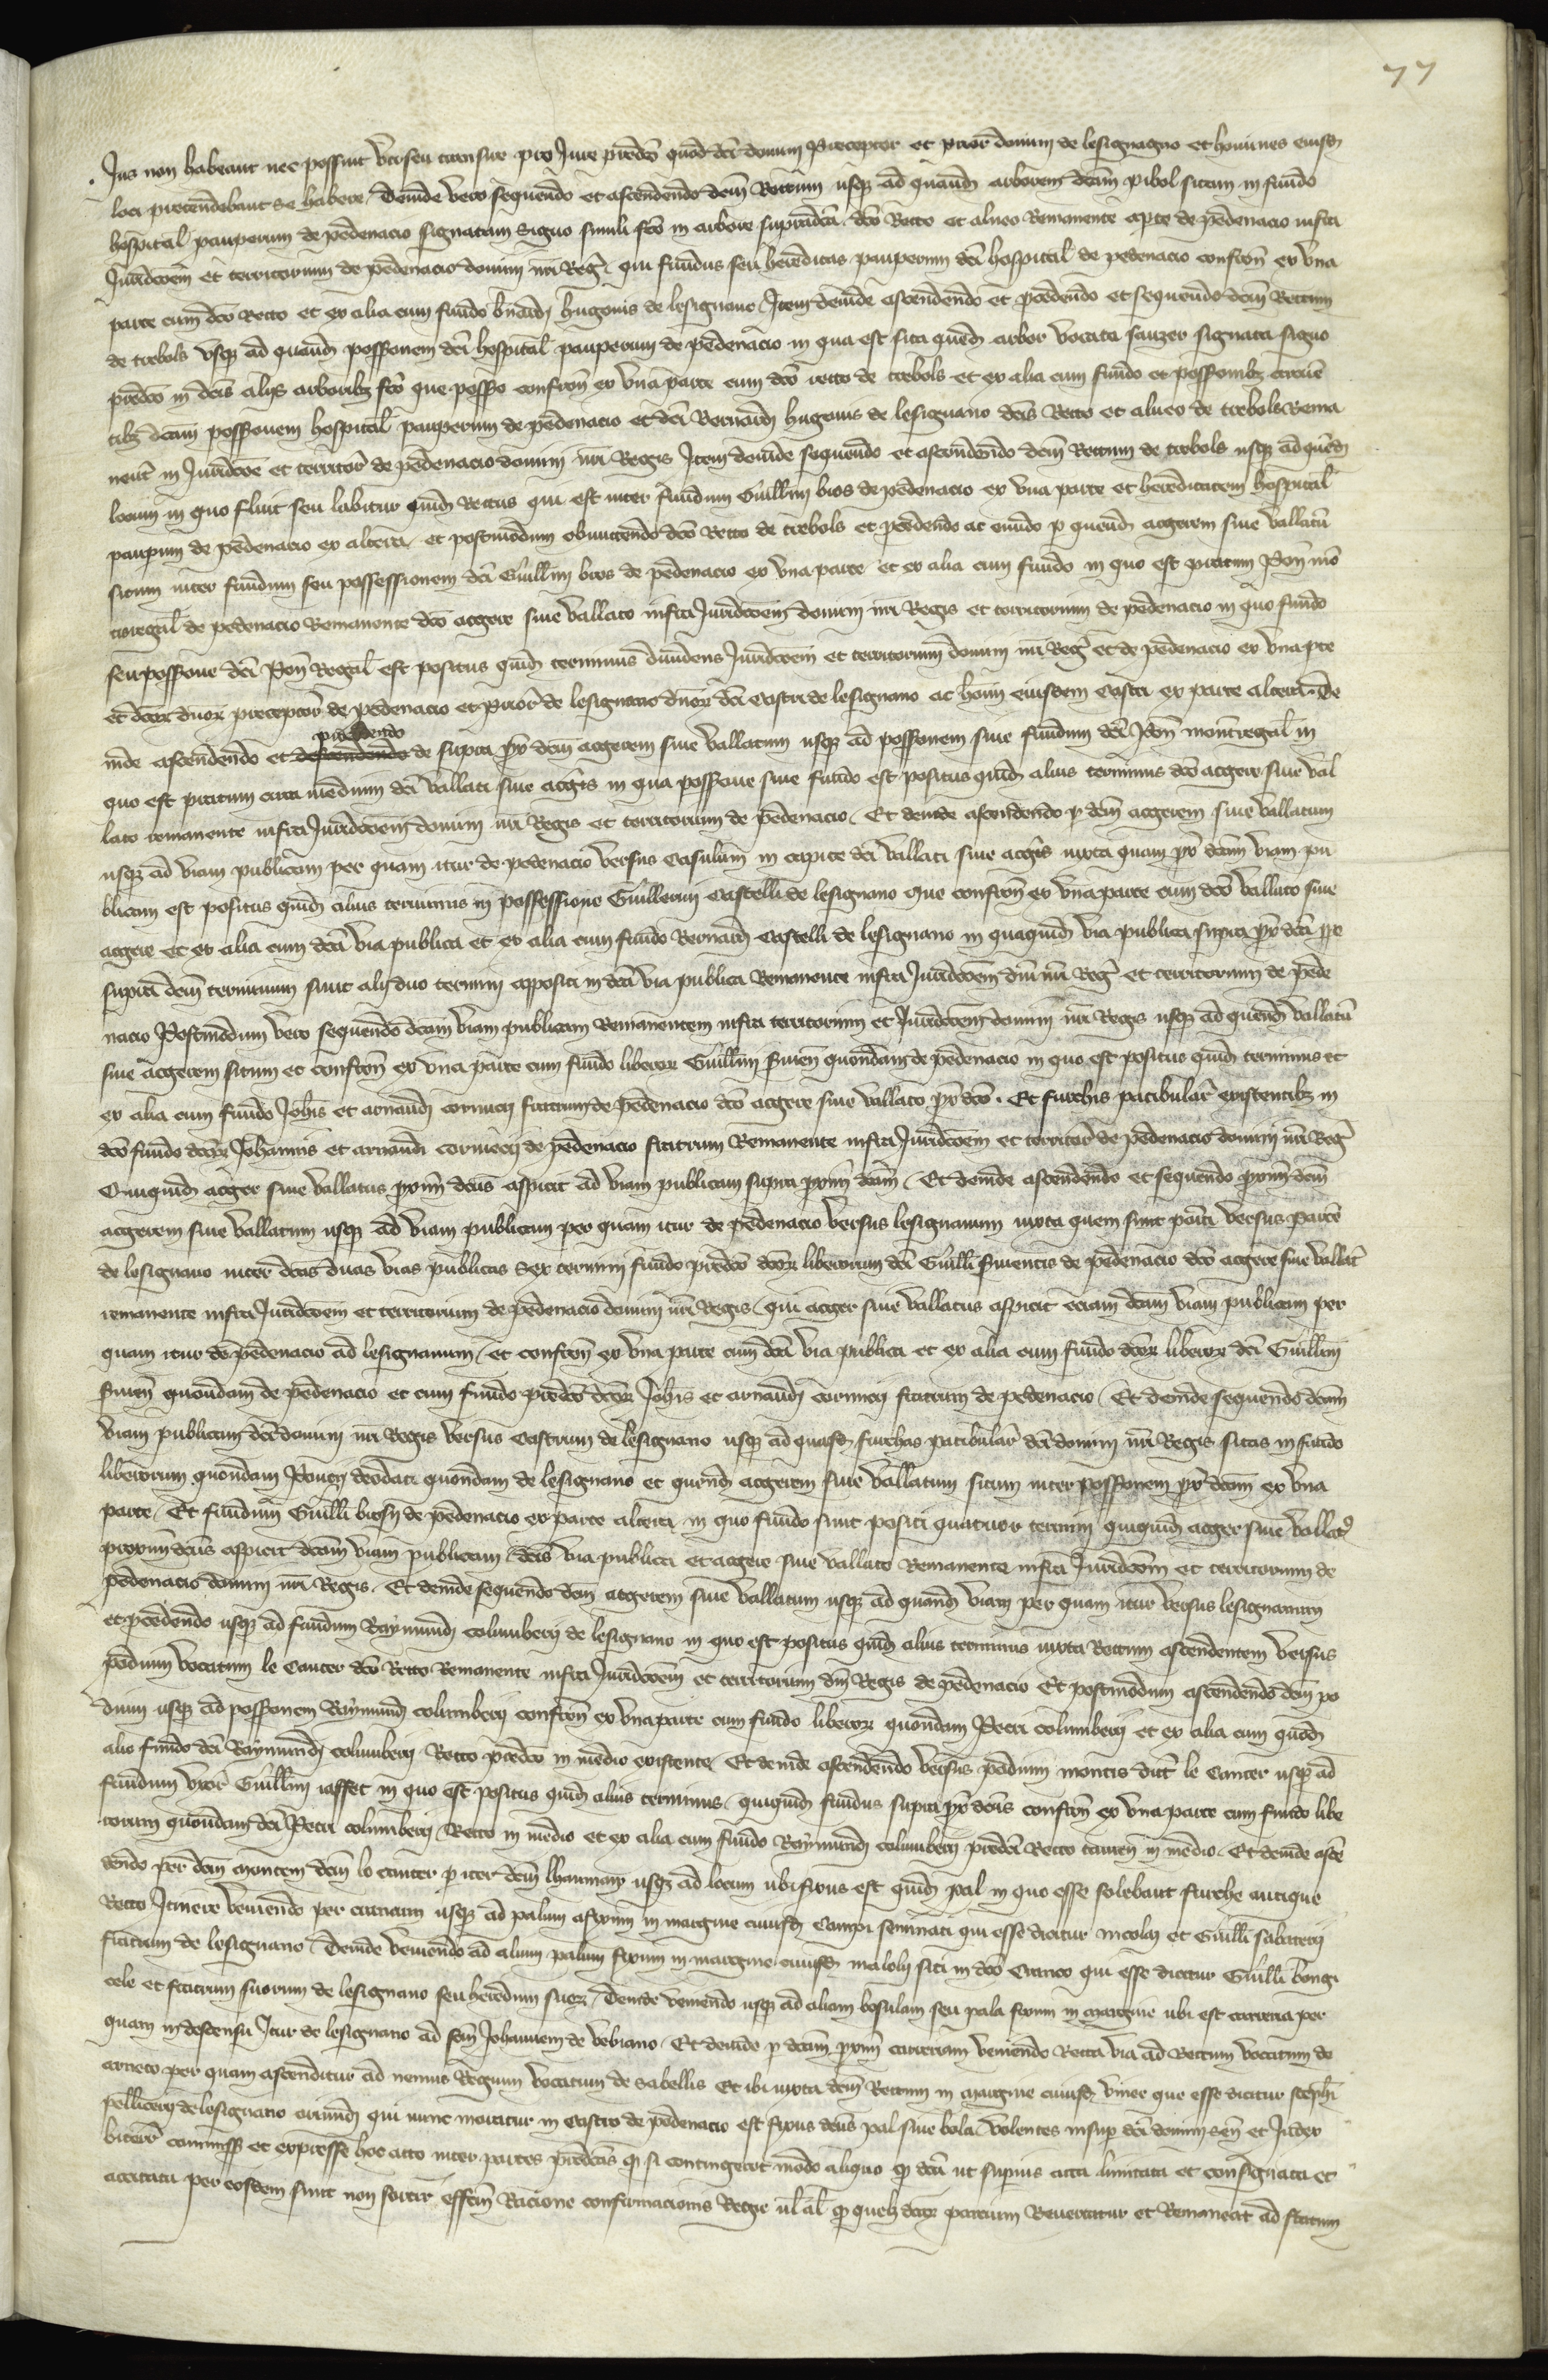 77
Jus non habeant nec possint vti seu censure pro Jure predco quod dci domini Preceptor et prior domini de lesignagno et homines eiusd
loci pretendebant se habere / Deinde vero sequendo et ascendendo dcm Rectum usq ad quand arborem dcam pibol sitam in fundo
hospital pauperum de pedenacio signatam signo simili fco in arbore supradca dco Recto et alueo Remanente a pte de pedenacio infra
Juridcoem et territorium de pedenacio domini nri Reg qui fundus seu hereditas pauperum dci hospital de pedenacio confron ex vna
parte cum dco Recto et ex alia cum fundo bnardi hugonis de lesignano / Item deinde ascendendo et pcedendo et sequendo dcm Rectum
de trebols vsq ad quand possonem dci hospital pauperum de pedenacio in qua est sita qued arbor vocata sauzer signata signo
predco in dcis alijs arboribz fco que posso confron ex vna parte cum dco recto de trebols et ex alia cum fundo et possonibz
tibz dcam possonem hospital pauperum de pedenacio et dci Bernardi hugonis de lesignano dcis Recto et alueo de trebols Rema
nent in Juridcoe et territor de pedenacio domini nri Regis Item deinde sequendo et ascendendo dcm Rectum de trebols usq ad qued
locum in quo fluit seu labitur quid Rectus qui est inter fundum Guillmi bros de pedenacio ex vna parte et hereditatem hospital
paupum de pedenacio ex altera et postmodum obmittendo dco Recto de trebols et pcedendo ac eundo p quend aggerem siue vallatu
situm inter fundum seu possessionem dci Guillmi bros de pedenacio ex vna parte et ex alia cum fundo in quo est pratum Pon mo
tisregal de pedenacio Remanente dco aggere siue vallato infra Juridcoem domini nri Regis et territorium de pedenacio in quo fundo
seu possone dci Pon Regal est positus quid terminus diuidens Juridcoem et territorium domini nri Reg et de pedenacio ex vna pte
et dcor dnor preceptor de pedenacio et prior de lesignano dnor dci Castri de lesignano ac hoim eiusdem Castri ex parte altera De
inde ascendendo et descendendo procedendo de supra px dcm aggerem siue vallatum usq ad possonem siue fundum dci Pon montregal in
quo est pratum circa medium dci vallati siue aggis in qua possone siue fundo est positus quid alius terminus dco aggere siue val
lato remanente infra Juridcoem domini nri Regis et territorium de pedenacio / Et deinde ascendendo p dcm aggerem siue vallatum
usq ad viam publicam per quam itur de pedenacio versus Casulum in capite dci vallati siue aggis iuxta quam px dcam viam pu
blicam est positus quid alius terminus in possessione Guillermi Castelli de lesignano que confron ex vna parte cum dco vallato siue
aggere et ex alia cum dca via publica et ex alia cum fundo Bernardi Castelli de lesignano in quaquid via publica supra px dca pe
supra dcm terminum sunt alij duo termini appositi in dca via publica Remanente infra Juridcoem dni nri Reg et territorium de pede
nacio Postmodum vero sequendo dcam viam publicam Remanentem infra territorium et Juridcoem domini nri Regis usq ad quend vallatu
siue aggerem situm et confron ex vna parte cum fundo liberor Guillmi Siuen quondam de pedenacio in quo est positus quid terminus et
ex alia cum fundo Johis et arnaudi cornuery fratrum de pedenacio dco aggere siue vallato px dco . Et furchis patibular existentibz in
dco fundo dcor Johannis et arnaudi Cornuery de pedenacio fratrum Remanente infra Juridcoem et territor de pedenacio domini nri Reg
Quiquid agger siue vallatus proxim dcus aspicit ad viam publicam supra proxim dcam / Et deinde ascendendo et sequendo proxim dcm
aggerem siue vallatum usq ad viam publicam per quam itur de pedenacio versus lesignanum iuxta quem sunt positi versus parte
de lesignano inter dcas duas vias publicas sex termini fundo predco dcor liberorum dci Guilli Siuentis de pedenacio dco aggere siue vallat
remanente infra Juridcoem et territorium de pedenacio domini nri Regis / qui agger siue vallatus aspicit eciam dcam viam publicam per
quam itur de pedenacio ad lesignanum / et confron ex vna parte cum dca via publica et ex alia cum fundo dcor liberor dci Guillmi
Siuen quondam de pedenacio et cum fundo predco dcor Johis et arnaudi cornuery fratrum de pedenacio / Et deinde sequendo dcam
viam publicam dci domini nri Regis versus Castrum de lesignano usq ad quasd furchas patibular dci domini nri Regis sitas in fundo
liberorum quondam Poncij deodati quondam de lesignano et quend aggerem siue vallatum situm inter possonem px dcam ex vna
parte / Et fundum Guilli brosy de pedenacio ex parte altera in quo fundo sunt positi quatuor termini quiquid agger siue vallat
proxim dcus aspicit dcam viam publicam dcis via publica et aggere siue vallato Remanente infra Juridcoem et territorium de
pedenacio domini nri Regis . Et deinde sequendo dcm aggerem siue vallatum usq ad quand viam per quam itur versus lesignanum
et pcedendo usq ad fundum Raymundi columbery de lesignano in quo est positus quid alius terminus iuxta Rectum ascendentem versus
podium vocatum le Cancer dco Recto Remanente infra Juridcoem et territorium dni Regis de pedenacio Et postmodum ascendendo dcm po
dium usq ad possonem Raymundi columbery confron ex vna parte cum fundo liberor quondam Petri columbery et ex alia cum quod
alio fundo dci Raymundi columbery Recto predco in medio existente / Et deinde ascendendo versus podium montis dict le Cancer usq ad
fundum vxor Guillmi iasset in quo est positus quid alius terminus / quiquid fundus supra px dcus confron ex vna parte cum fundo libe
rorum quondam dci Petri columbery Recto in medio et ex alia cum fundo Raymundi columbery predci Recto tamen in medio . Et deinde asce
dendo per dcm montem dcm lo cancer p iter dcm lhaumay usq ad locum ubi fixus est quid pal in quo esse solebant furche antique
Recto Itinere veniendo per cumam usq ad palum afixum in margine cuiusd Campi seminati qui esse dicitur nicolay et Guilli sabatery
fratrum de lesignano / Deinde veniendo ad alium palum fixum in margine cuiusd maloly siti in dco Cranco qui esse dicitur Guilli bongi
cele et fratrum suorum de lesignano seu heredum suor / Deinde veniendo usq ad aliam bosulam seu pala fixum in margine ubi est carreria per
quam in descensu Itur de lesignano ad scm Johannem de bebiano / Et deinde p dcam proxim carreriam veniendo Recta via ad Rectum vocatum de
arneto per quam ascenditur ad nemus Regium vocatum de Sabellis Et ibi iuxta dcm Rectum in margine cuiusd vinee que esse dicitur Stephi
pellicery de lesignano oriundi qui nunc moratur in Castro de pedenacio est fixus dcus pal siue bola / Volentes insup dci domini sen et Judex
biterr commissi et expresse hoc acto inter partes predcas q si contingeret modo aliquo q dca ut supius acta limitata et consignata et
attractata per eosdem sunt non sortir effcm Racione confirmacionis Regie ul al q quelz dcar partium Reuertatur et Remaneat ad statum